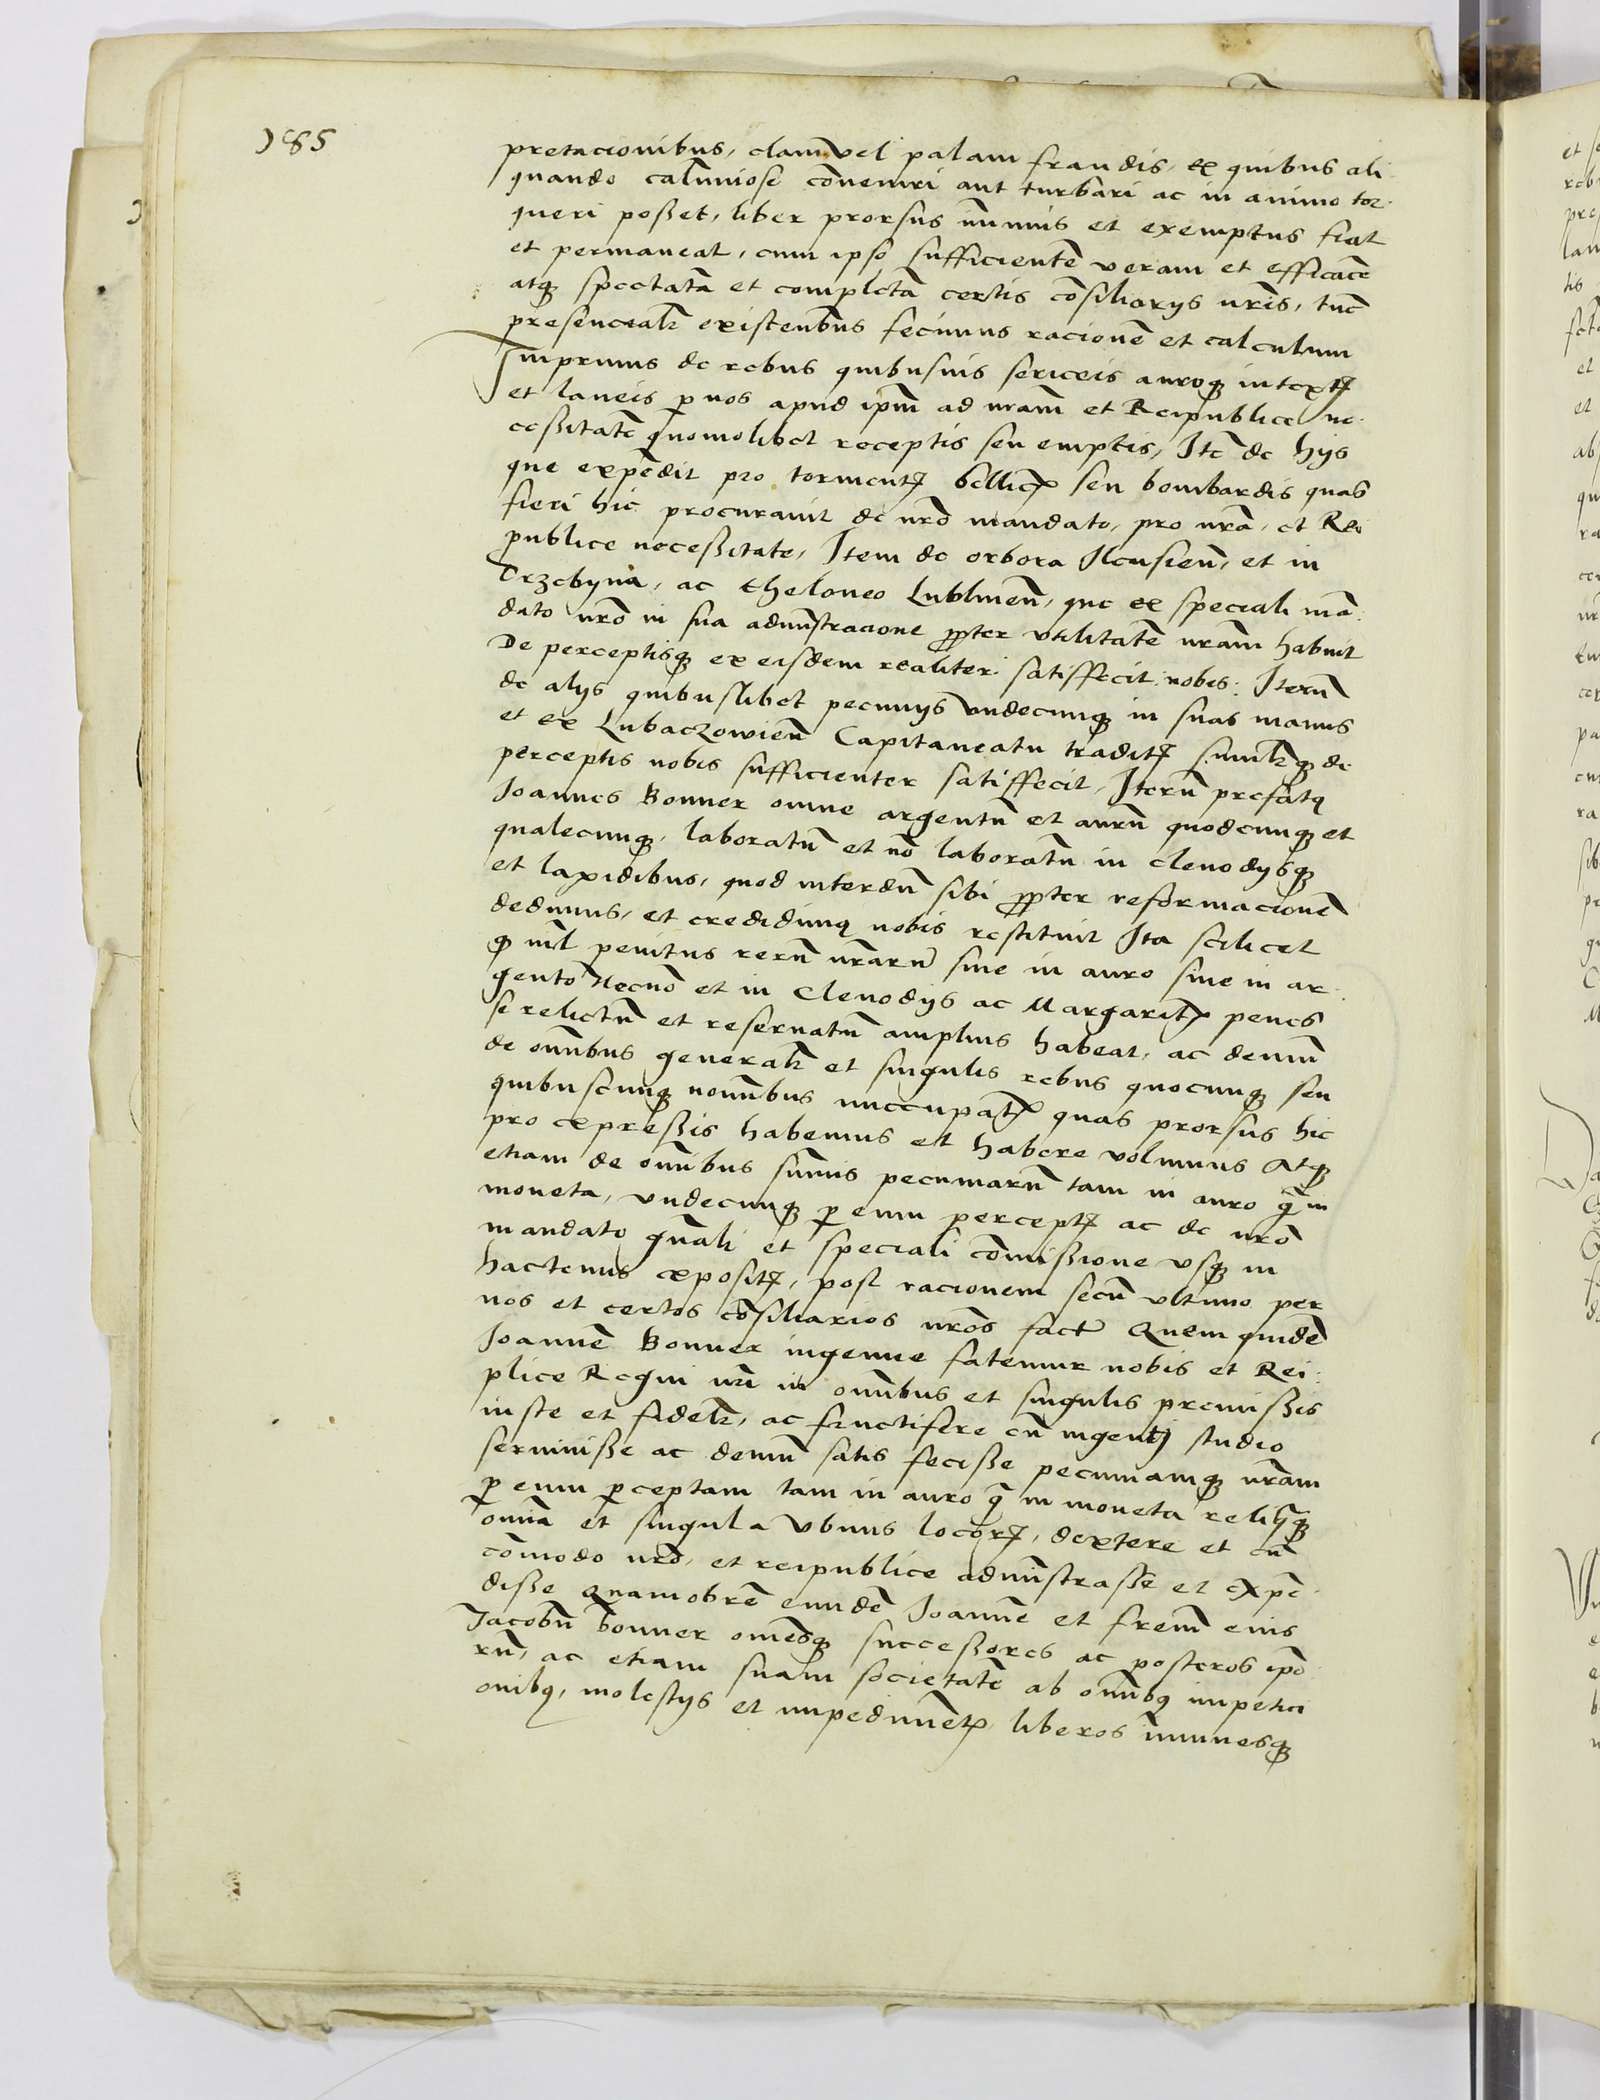 185
pretacionibus, clam vel palam fraudis, ex quibus ali
quando calūniose cōveniri aut turbari ac in animo tor
queri posset, liber prorsus īmunis et exemptus fiat
et permaneat, cum ipso sufficientē veram et efficacē
atq3 spectatā et completā certis cōsiliarijs nr̄is, tūc
presencialr existentibus fecimus racionē et calculum
Inprimis de rebus quibusuis sericeis auroq3 intextꝭ
et laneis ꝑ nos apud ipm̄ ad nram̄ et Reipublice ne
cessitatē quomolibet receptis seu emptis, Itē de hijs
que expēdit pro tormentꝭ bellicꝭ seu bombardis quas
fieri hic procurauit de nrō mandato, pro nrā, et Rei
publice necessitate, Item de orbora Ilcusien̄, et in
Trzebyna, ac theloneo Lublinen̄, que ex speciali mā
dato nrō in sua admīstracione ꝓpter vtilitatē nram̄ habuit
De perceptisq3 ex eisdem realiter satisffecit nobis: Iterū
de alijs quibuslibet pecunijs vndecunq3 in suas manus
et ex Lubaczowien̄ Capitaneatu traditꝭ similrq3 de
perceptis nobis sufficienter satisffecit, Iterū prefatꝰ
Joannes Bonner omne argentū et aurū quodcunq3 et
qualecunq3, laboratū et nō laboratū in clenodijsq3
et lapidibus, quod interdū sibi ꝓpter reformacionē
dedimus, et credidimꝰ nobis restituit Ita scilicet
ꝙ nil̄ penitus rerū nrarū siue in auro siue in ar
gento Necnō et in Clenodijs ac Margaritꝭ penes
se relictū et reseruatū amplius habeat, ac demū
de omībus generalr et singulis rebus quocunq3 seu
quibuscunq3 nomībus nuccupatꝭ quas prorsus hic
pro expressis habemus et habere volumus Atq3
etiam de omībus sum̄is pecuniarū tam in auro q̄ in
moneta, vndecunq3 ꝑ eum perceptꝭ ac de nrō
mandato gn̄ali et speciali cōmissione vsq3 in
hactenus expositꝭ, post racionem secū vltimo per
nos et certos cōsiliarios nrōs factā Quem quidē
Joannē Bonner ingenue fatemur nobis et Rei
plice Regni nri in omībus et singulis premissis
iuste et fidelr, ac fructifere cū ingentj studio
seruiuisse ac demū satis fecisse pecuniamq3 nram̄
ꝑ eum ꝑceptam tam in auro q̄ in moneta reliq̄q3
omīa et singula vbiuis locorꝭ, dextere et cū
cōmodo nrō, et reipublice admīstrasse et expē
disse Quamobrē eundē Joannē et frem̄ eius
Jacobū Bonner omēsq3 successores ac posteros ipō
rū, ac etiam suam societatē ab omībꝰ impetici
onibꝰ, molestijs et impedimētꝭ liberos īmunesq3